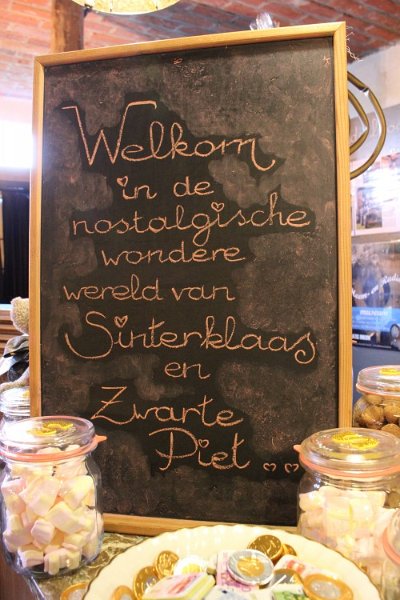 Welkom
in de
nostalgische
wondere
wereld van
Sinterklaas
en
Zwarte
Piet ..